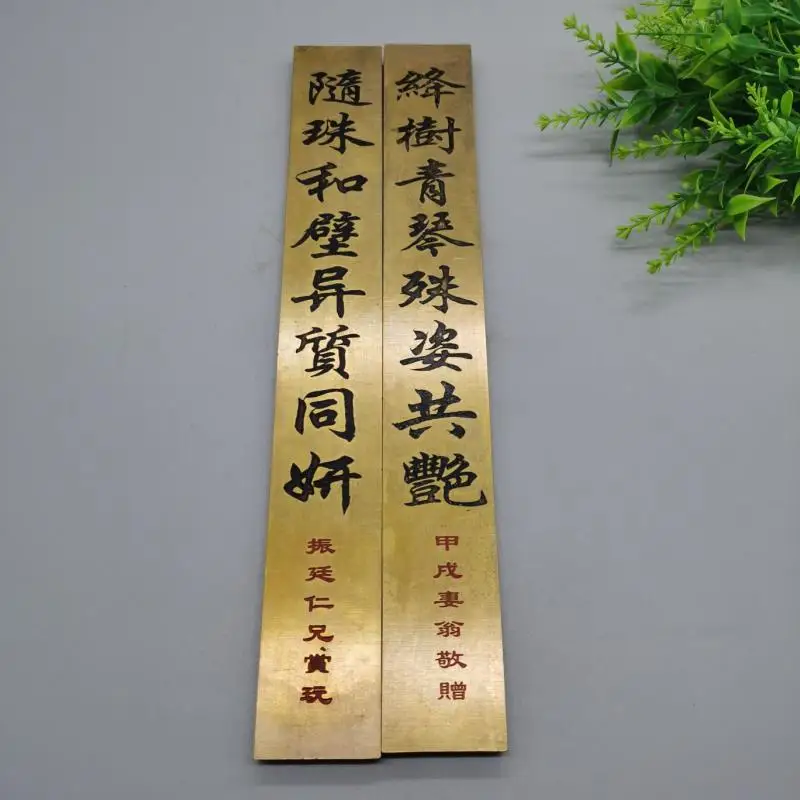 絳樹青琴殊姿共艷
甲戌妻翁敬贈
隨珠和璧异質同妍
振廷仁兄賞玩